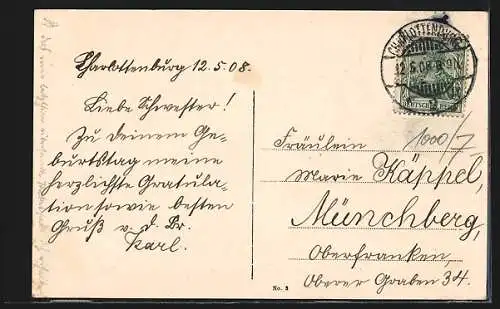 Charlottenburg 12.5.08.
Liebe Schwester!
Zu Deinem Ge-
burtstag meine
herzlichste Gratula-
tion sowie besten
Gruß v. d. Br.
Karl.
CHARLOTTENBURG
12.5.08. 8-9N.
1000/7
Fräulein
Marie Käppel,
Münchberg,
Oberfranken,
Oberer Graben 34.
No. 3